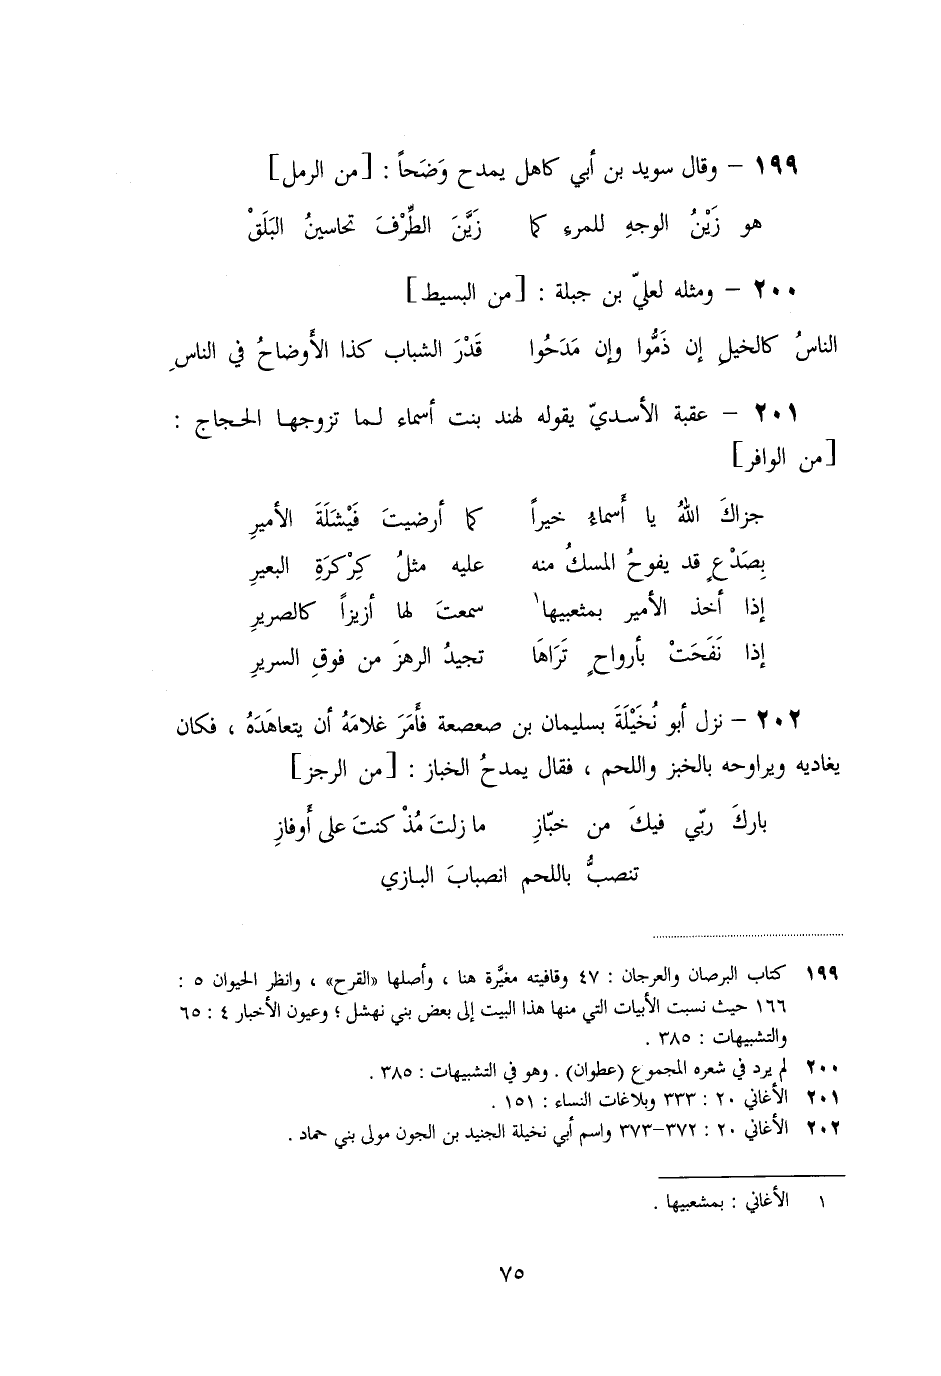 ١٩٩ – وقال سويد بن أبي كاهل يمدح وَضَحاً : [من الرمل]
هو زَيْنُ الوجهِ للمرءِ كما زَيَّنَ الطِّرْفَ تحاسينُ البَلَقْ
٢٠٠ – ومثله لعليّ بن جبلة : [من البسيط]
الناسُ كالخيلِ إن ذَمُّوا وإن مَدَحُوا قَدْرَ الشباب كذا الأَوضاحُ في الناسِ
٢٠١ – عقبة الأسديّ يقوله لهند بنت أسماء لما تزوجها الحجاج :
[من الوافر]
جزاكَ اللهُ يا أَسماءُ خيراً كما أرضيتَ فَيْشَلَةَ الأميرِ
بِصَدْعٍ قد يفوحُ المسكُ منه عليه مثلُ كِرْكرَةِ البعيرِ
إذا أخذ الأمير بمثعبيها١ سمعتَ لها أزيزاً كالصريرِ
إذا نَفَحَتْ بأرواحٍ تَرَاهَا تجيدُ الرهزَ من فوقِ السريرِ
٢٠٢ – نزل أبو نُخَيْلَةَ بسليمان بن صعصعة فأَمَرَ غلامَهُ أن يتعاهَدَهُ ، فكان
يغاديه ويراوحه بالخبز واللحم ، فقال يمدحُ الخباز : [من الرجز]
باركَ ربّي فيكَ من خبّازِ ما زلتَ مُذْ كنتَ على أَوفازِ
تنصبُّ باللحم انصبابَ البازي
١٩٩ كتاب البرصان والعرجان : ٤٧ وقافيته مغيَّرة هنا ، وأصلها «القرح» ، وانظر الحيوان ٥ :
١٦٦ حيث نسبت الأبيات التي منها هذا البيت إلى بعض بني نهشل ؛ وعيون الأخبار ٤ : ٦٥
والتشبيهات : ٣٨٥ .
٢٠٠ لم يرد في شعره المجموع (عطوان) . وهو في التشبيهات : ٣٨٥ .
٢٠١ الأغاني ٢٠ : ٣٣٣ وبلاغات النساء : ١٥١ .
٢٠٢ الأغاني ٢٠ : ٣٧٢–٣٧٣ واسم أبي نخيلة الجنيد بن الجون مولى بني حماد .
١ الأغاني : بمشعبيها .
٧٥